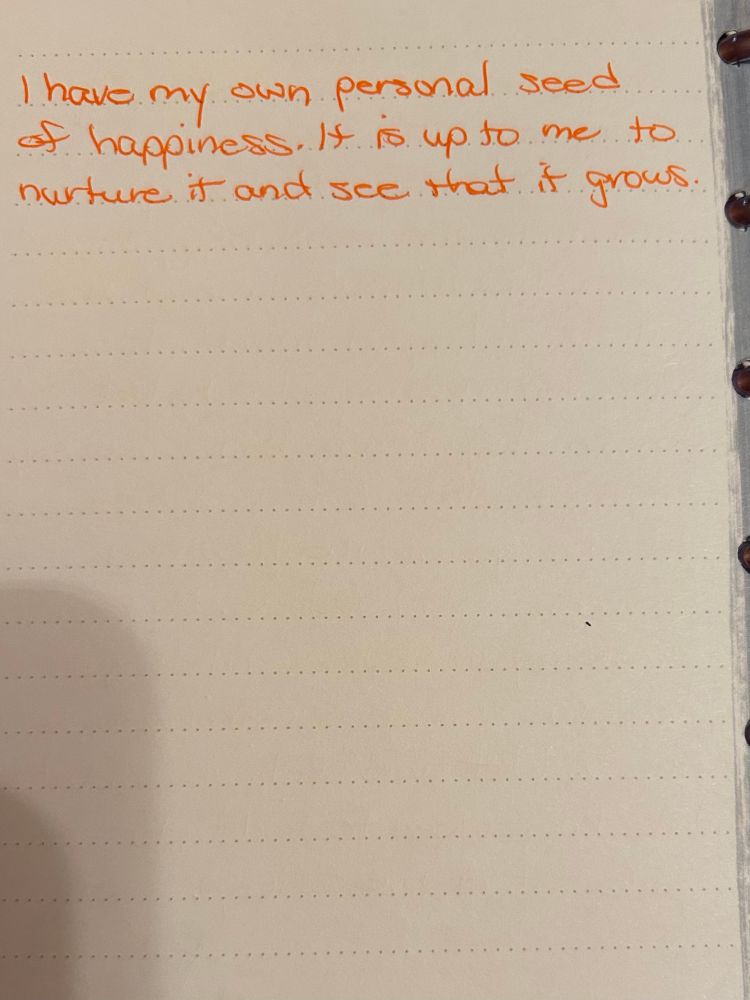 I have my own personal seed
of happiness. It is up to me to
nurture it and see that it grows.